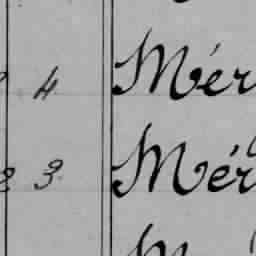 4 Mér
3 Mér